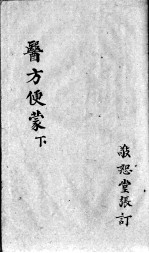 醫方便蒙下
敬恕堂張訂